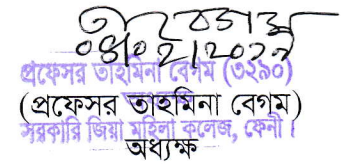 ০৪।০২।২০২১
প্রফেসর তাহমিনা বেগম (৩২৯০)
(প্রফেসর তাহমিনা বেগম)
সরকারি জিয়া মহিলা কলেজ, ফেনী।
অধ্যক্ষ